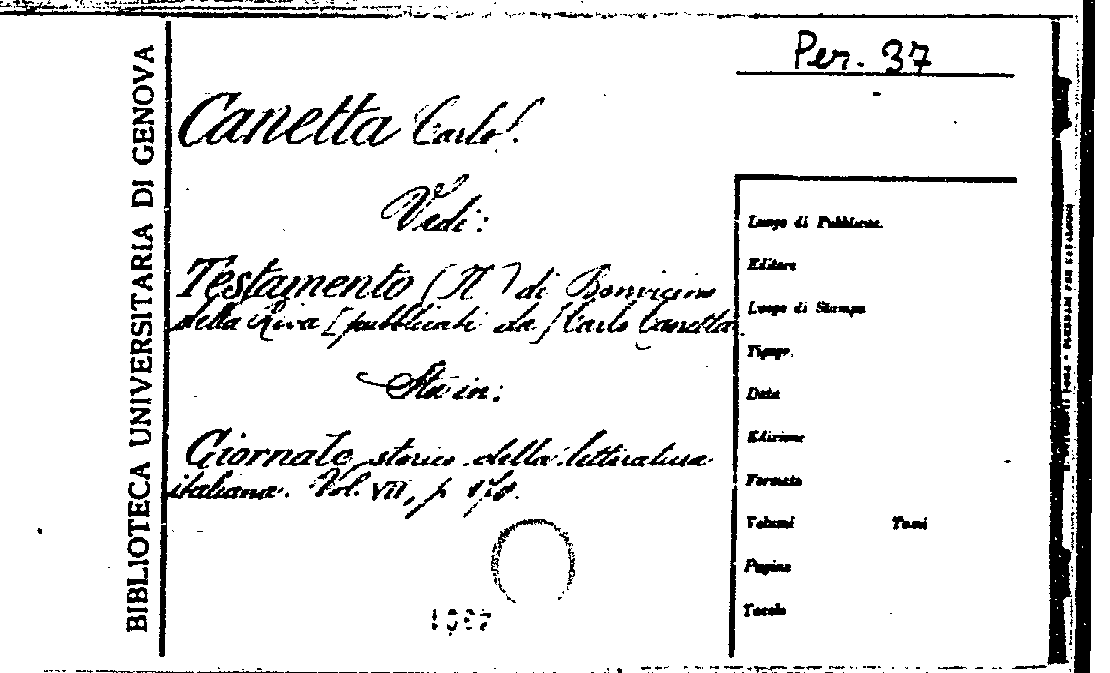 Per. 37
BIBLIOTECA UNIVERSITARIA DI GENOVA
Canetta Carlo.
Vedi:
Testamento (Il) di Bonvicino
della Riva [pubblicati da] Carlo Canetta.
Sta in:
Giornale storico della letteratura
italiana. Vol. VII, p.
Luogo di Pubblicaz.
Editore
Luogo di Stampa
Tipogr.
Data
Edizione
Formato
Volumi Tomi
Pagine
Tavole